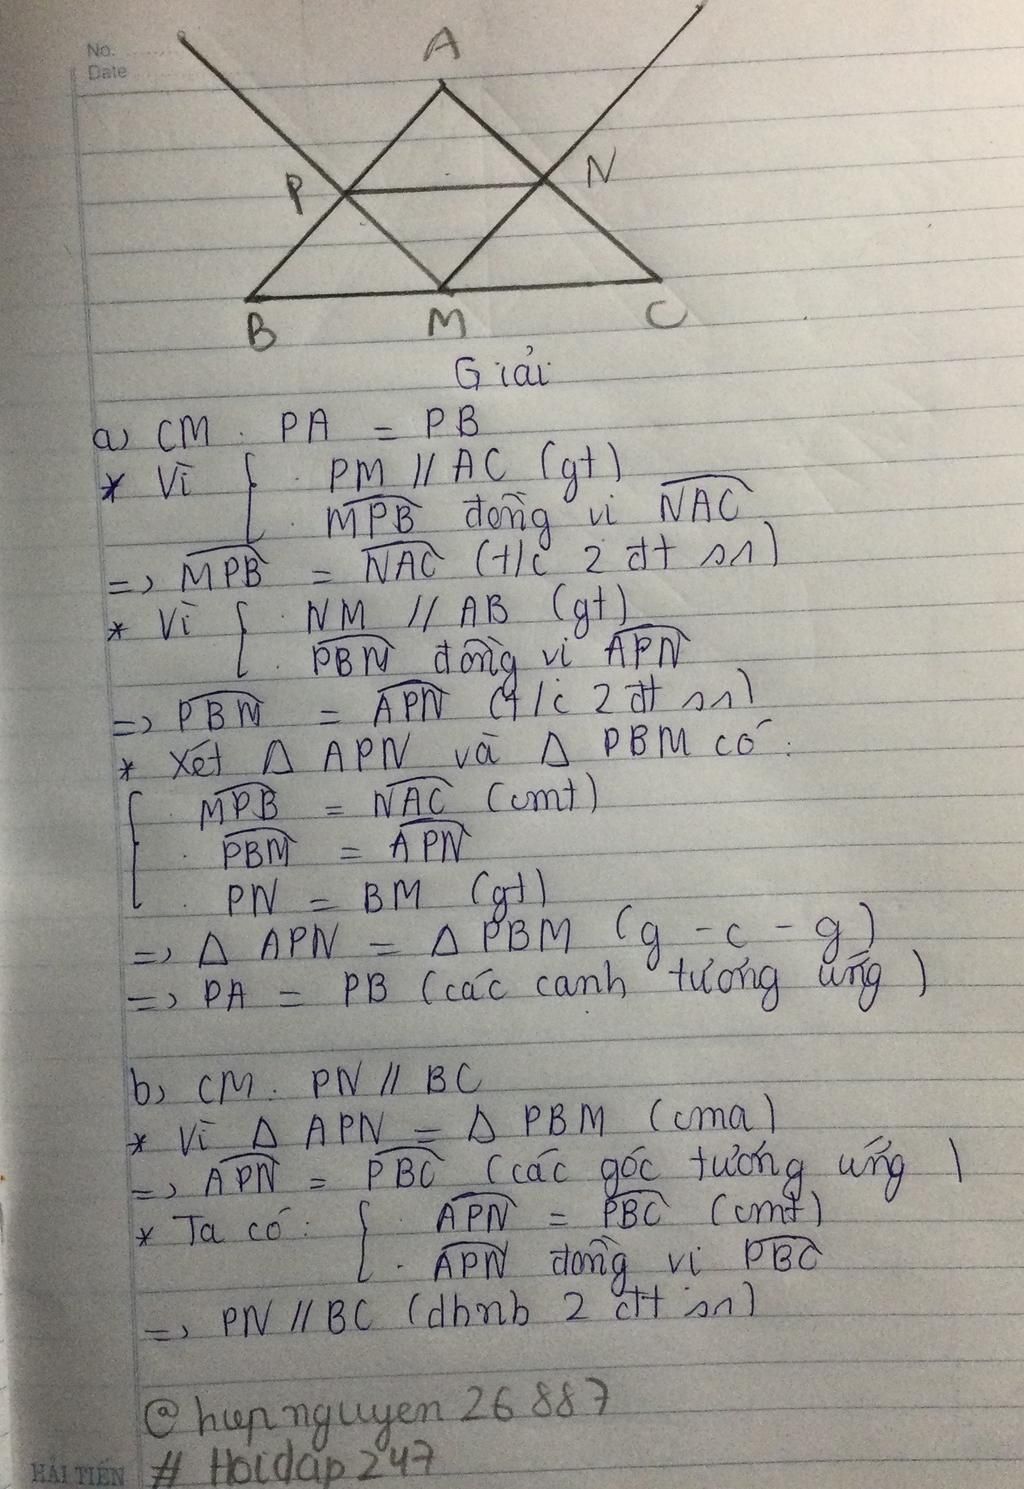 No.
Date
A
P
N
B
M
C
Giải
a, CM : PA = PB
* Vì { . PM // AC (gt)
. MPB đồng vị NAC
=> MPB = NAC (t/c 2 đt ss)
* Vì { . NM // AB (gt)
. PBM đồng vị APN
=> PBM = APN (t/c 2 đt ss)
* Xét Δ APN và Δ PBM có :
{ MPB = NAC (cmt)
. PBM = APN
. PN = BM (gt)
=> Δ APN = Δ PBM (g - c - g)
=> PA = PB (các cạnh tương ứng)
b, CM : PN // BC
* Vì Δ APN = Δ PBM (cma)
=> APN = PBC (các góc tương ứng)
* Ta có : { . APN = PBC (cmt)
. APN đồng vị PBC
=> PN // BC (dhnb 2 đt ss)
@hiepnguyen26887
# Hoidap247
HẢI TIẾN